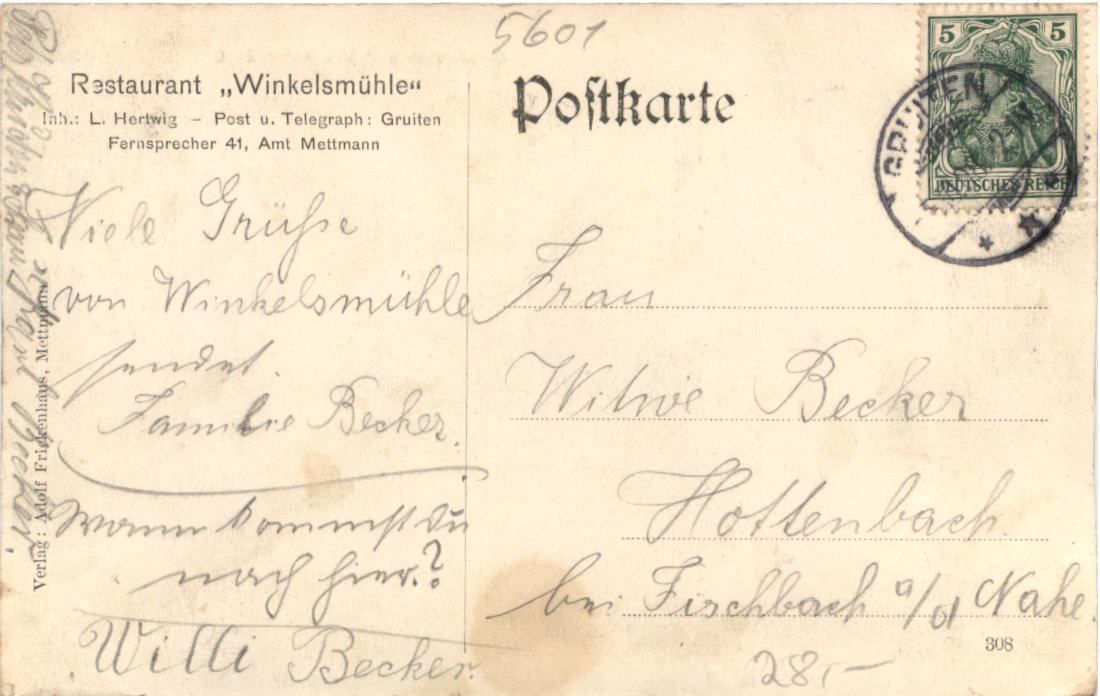 5601
Restaurant „Winkelsmühle“
Inh.: L. Hertwig – Post u. Telegraph: Gruiten
Fernsprecher 41, Amt Mettmann
Postkarte
5 5
DEUTSCHES REICH
GRUITEN
Viele Grüße
von Winkelsmühle
sendet.
Familie Becker.
wann kommst du
nach hier.?
Willi Becker.
Frau
Witwe Becker
Hottenbach
bei Fischbach a/d Nahe.
308
28,-
Verlag: Adolf Frickenhaus, Mettmann